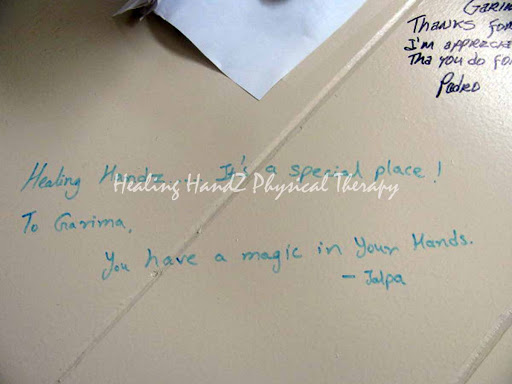 Garima
Thanks for
I'm apprecia
Tha you do for
Pedro
Healing Handz... It's a special place!
Healing HandZ Physical Therapy
To Garima,
You have a magic in Your Hands.
- Jalpa